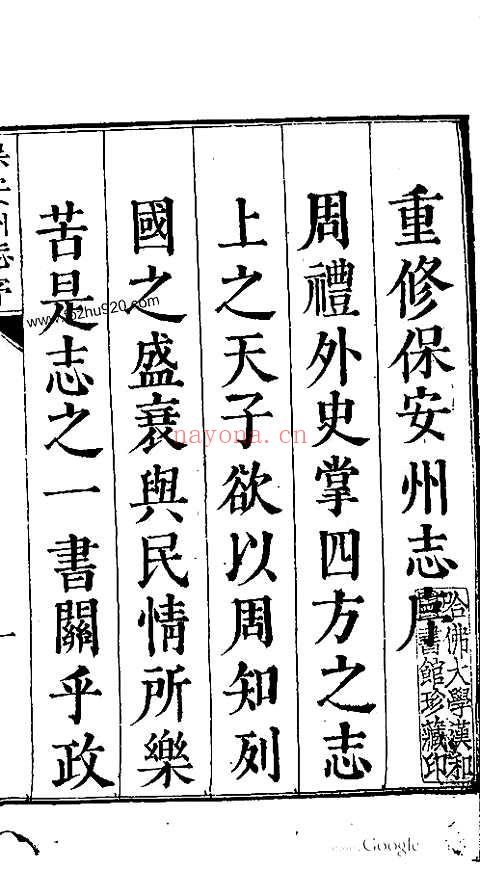 重修保安州志序
周禮外史掌四方之志
上之天子欲以周知列
國之盛衰與民情所樂
苦是志之一書關乎政
保安州志序
一
哈佛大學漢和
圖書館珍藏印
www.szhu920.com
nayona.cn
Google